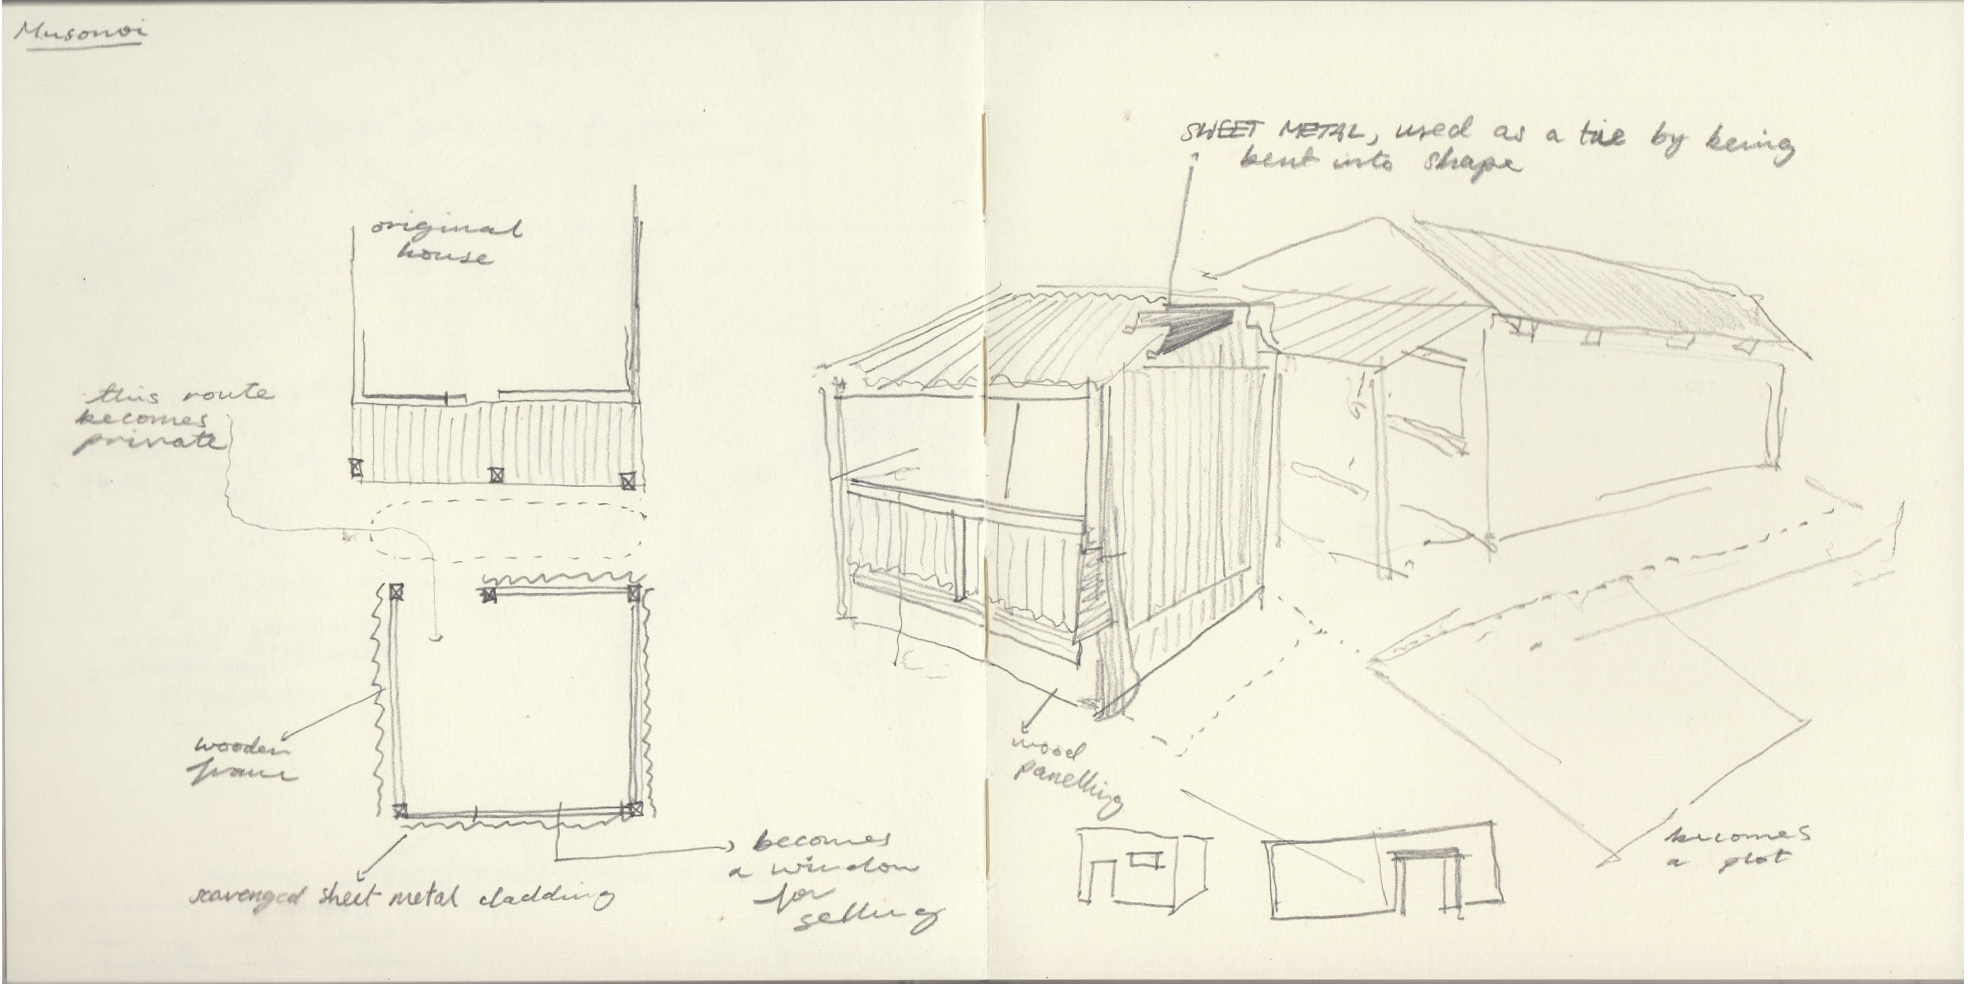 Musonoi
SHEET METAL, used as a tie by being
bent into shape
original
house
this route
becomes
private
wooden
frame
wood
panelling
becomes
a window
for
selling
becomes
a plot
scavenged sheet metal cladding